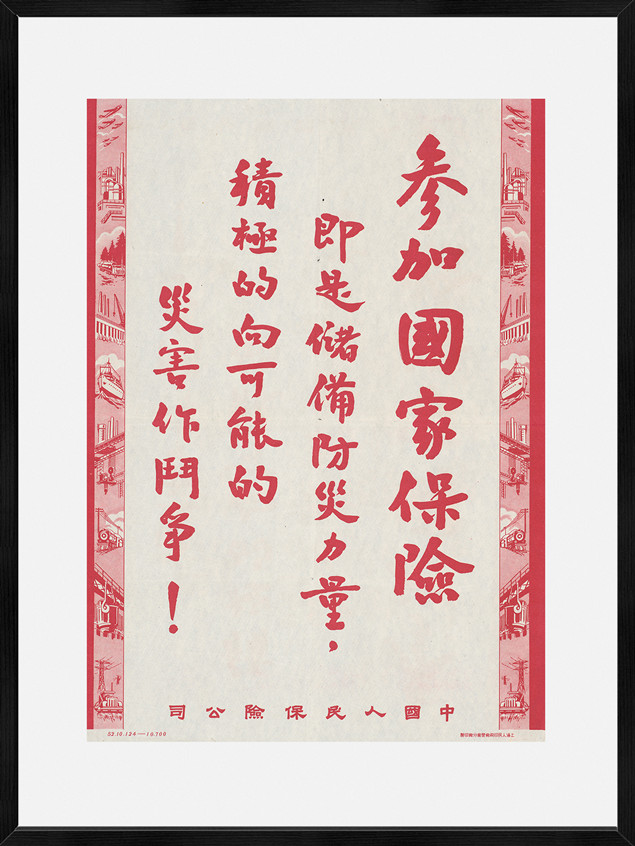 參加國家保險
即是儲備防災力量，
積極的向可能的
災害作鬥爭！
中國人民保險公司
52.10.124—10.700